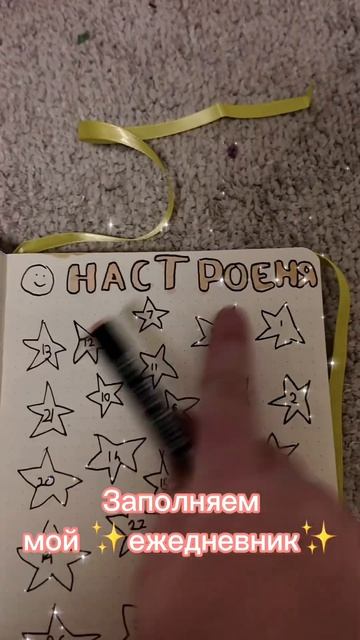 НАСТРОЕНЯ
7
1
13
12
11
10
2
21
20
22
Заполняем
мой ✨ежедневник✨